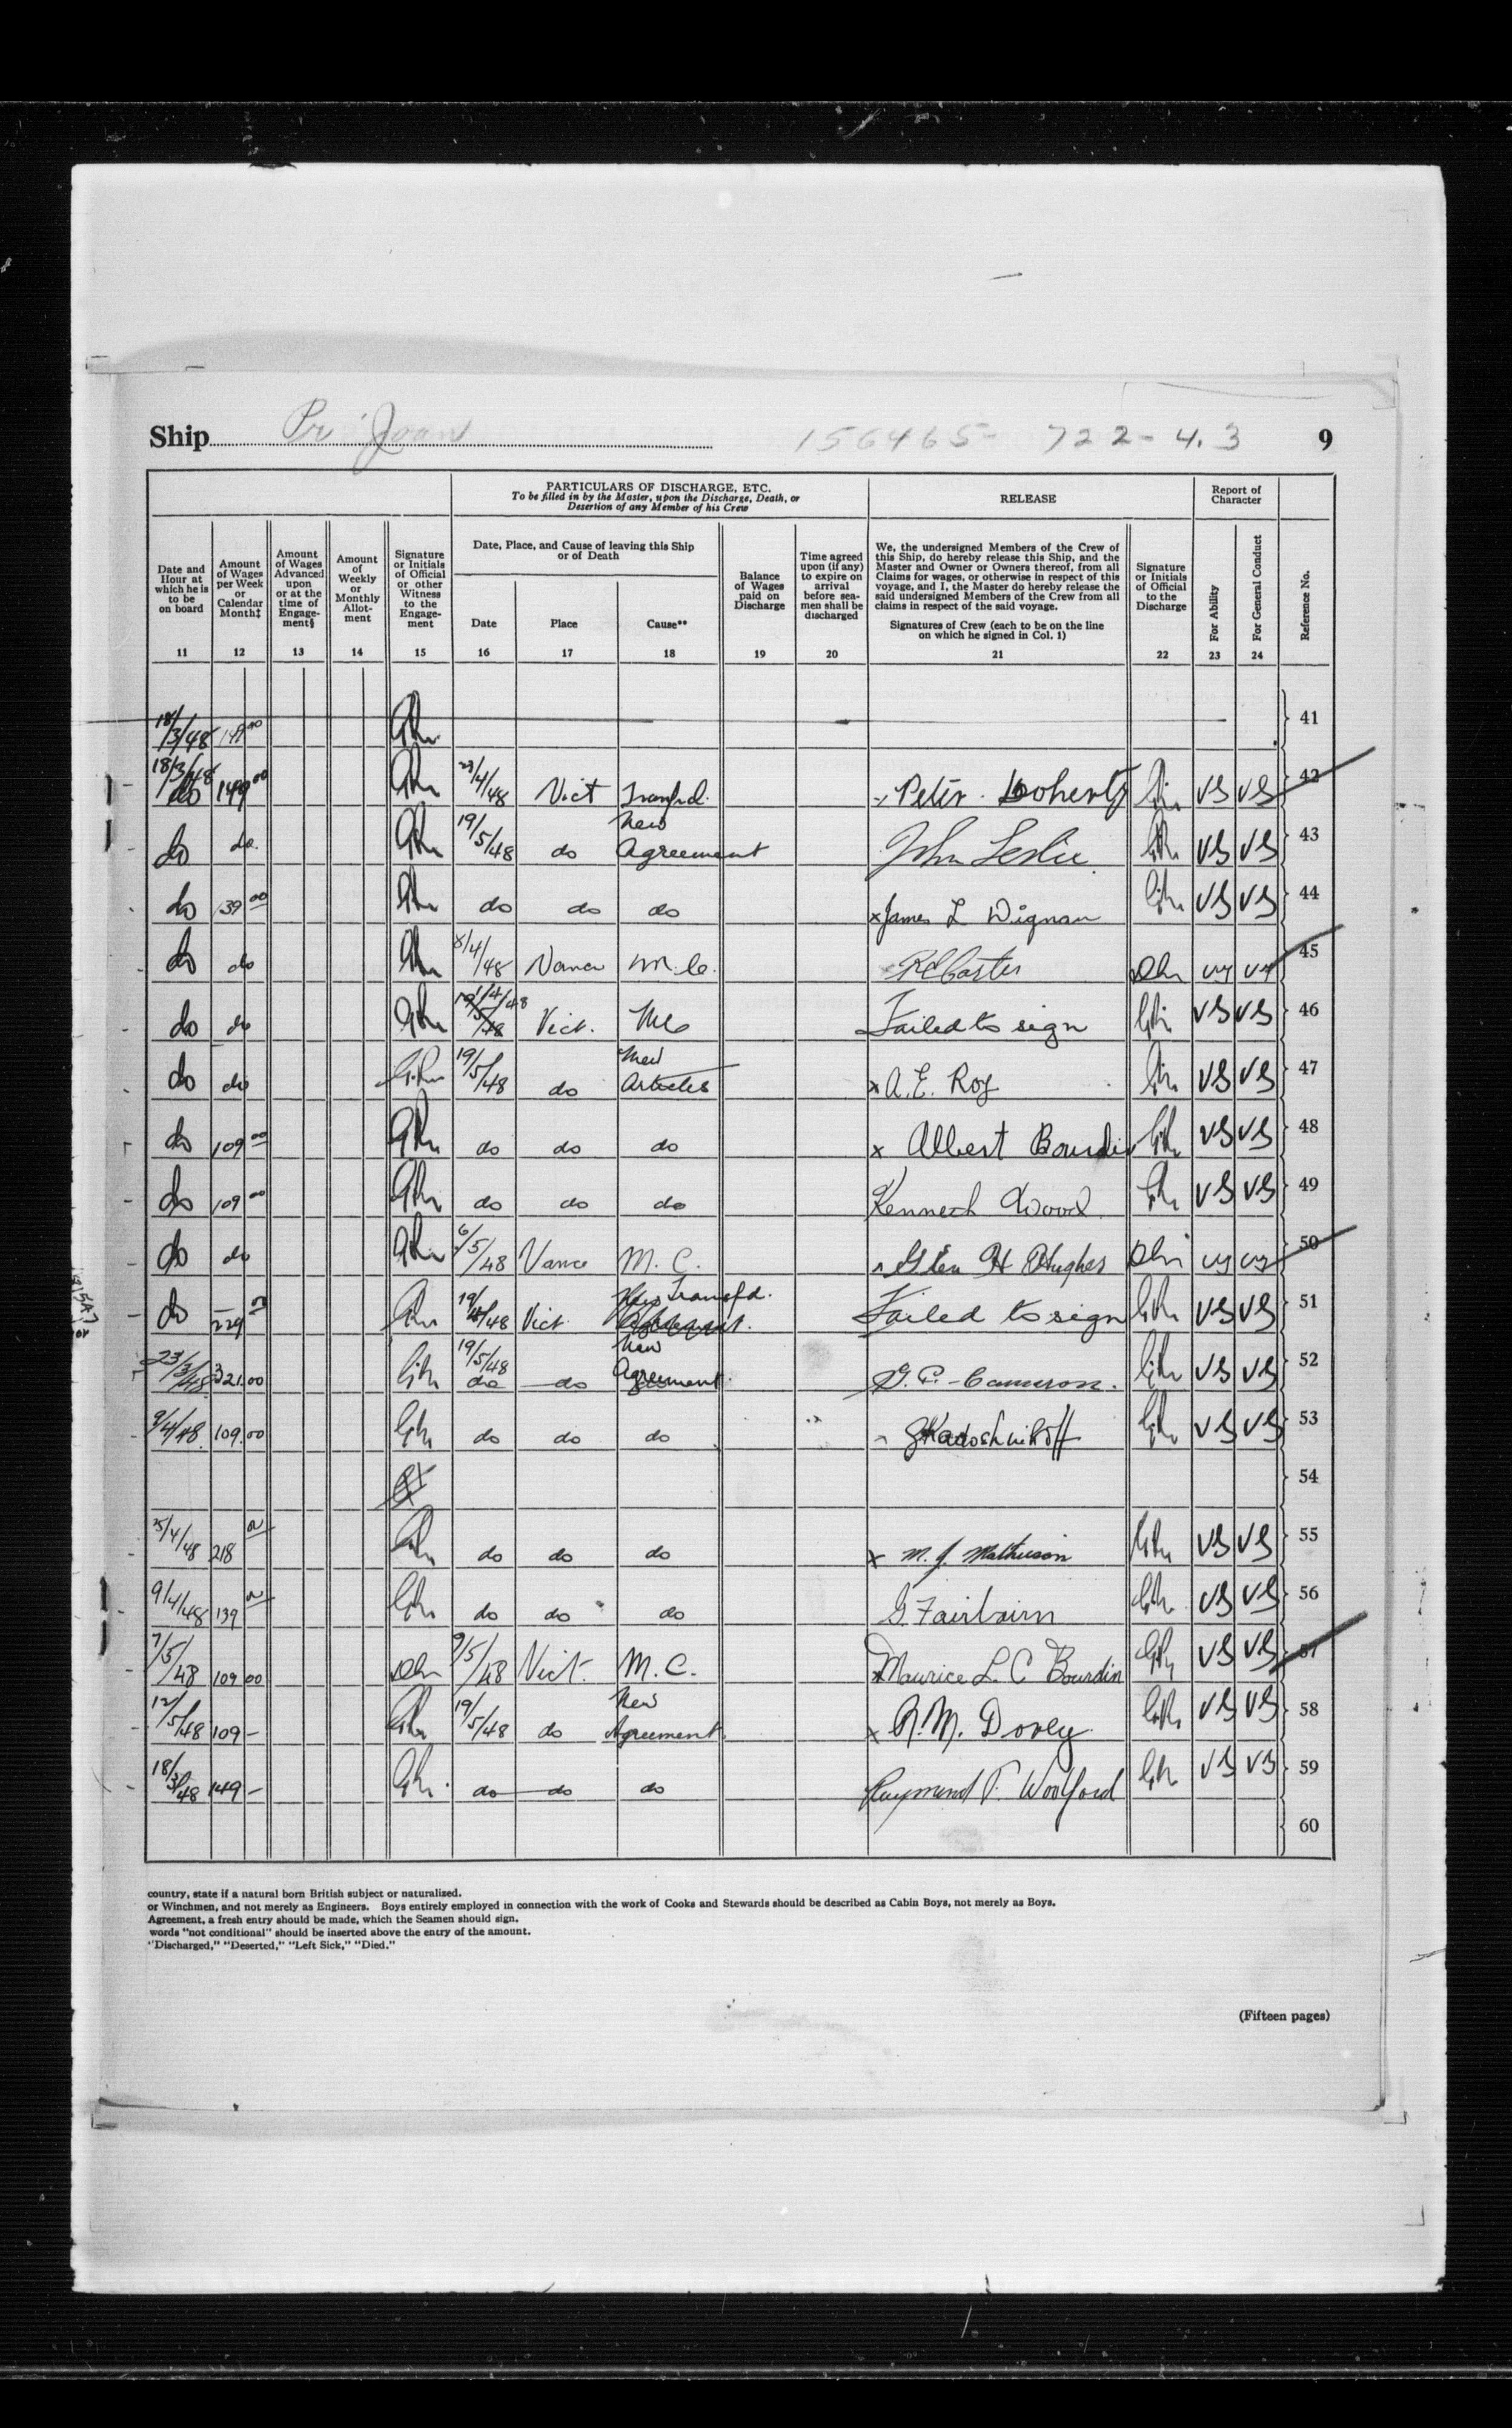 Ship Pr Joan 156465- 722-4.3 9
PARTICULARS OF DISCHARGE, ETC.
To be filled in by the Master, upon the Discharge, Death, or
Desertion of any Member of his Crew
RELEASE
Report of
Character
Date and
Hour at
which he is
to be
on board
11
Amount
of Wages
per Week
or
Calendar
Month‡
12
Amount
of Wages
Advanced
upon
or at the
time of
Engage-
ment§
13
Amount
of
Weekly
or
Monthly
Allot-
ment
14
Signature
or Initials
of Official
or other
Witness
to the
Engage-
ment
15
Date, Place, and Cause of leaving this Ship
or of Death
Date
16
Place
17
Cause**
18
Balance
of Wages
paid on
Discharge
19
Time agreed
upon (if any)
to expire on
arrival
before sea-
men shall be
discharged
20
We, the undersigned Members of the Crew of
this Ship, do hereby release this Ship, and the
Master and Owner or Owners thereof, from all
Claims for wages, or otherwise in respect of this
voyage, and I, the Master do hereby release the
said undersigned Members of the Crew from all
claims in respect of the said voyage.
Signatures of Crew (each to be on the line
on which he signed in Col. 1)
21
Signature
or Initials
of Official
to the
Discharge
22
For Ability
23
For General Conduct
24
Reference No.
18/3/48 149 00 41
18/3/48 do 149 00 23/4/48 Vict Transfd. Peter Doherty VG VG 42
do do. 19/5/48 do New Agreement John Leslie VG VG 43
do 139 00 do do do x James L Dignan VG VG 44
do do 8/4/48 Vanc m.c. R Carter vg vg 45
do do 1/4/48 Vict. Mc Failed to sign VG VG 46
do do 19/5/48 do New Articles x A.E. Roy VG VG 47
do 109 00 do do do x Albert Bourdin VG VG 48
do 109 00 do do do Kenneth Wood VG VG 49
do do 6/5/48 Vanc M.C. Glen H Hughes vg vg 50
do 229 00 19/48 Vict. Transfd. Failed to sign VG VG 51
23/3/48 321.00 19/5/48 do do New Agreement G.C. Cameron. VG VG 52
9/4/48 109.00 do do do Kadoshnikoff VG VG 53
54
25/4/48 218 do do do x M. J. Matheson VG VG 55
9/4/48 139 do do do G. Fairbairn VG VG 56
7/5/48 109 00 9/5/48 Vict. M.C. x Maurice L. C Bourdin VG VG 57
12/5/48 109 - 19/5/48 do New Agreement x R.M. Dovey VG VG 58
18/3/48 149 - do do do Raymond F. Woolford VG VG 59
60
country, state if a natural born British subject or naturalized.
or Winchmen, and not merely as Engineers. Boys entirely employed in connection with the work of Cooks and Stewards should be described as Cabin Boys, not merely as Boys.
Agreement, a fresh entry should be made, which the Seamen should sign.
words "not conditional" should be inserted above the entry of the amount.
"Discharged," "Deserted," "Left Sick," "Died."
(Fifteen pages)